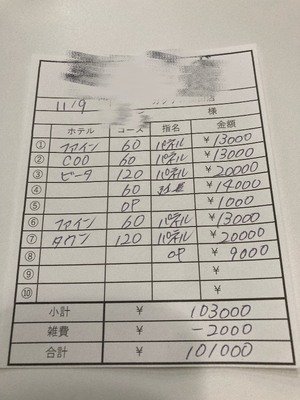 11/9
様
ホテル コース 指名 金額
① ファイン 60 パネル ¥13000
② COO 60 パネル ¥13000
③ ピータ 120 パネル ¥20000
④ 60 ¥14000
⑤ OP ¥1000
⑥ ファイン 60 パネル ¥13000
⑦ タウン 120 パネル ¥20000
⑧ OP ¥9000
⑨ ¥
⑩ ¥
小計 ¥ 103000
雑費 ¥ -2000
合計 ¥ 101000